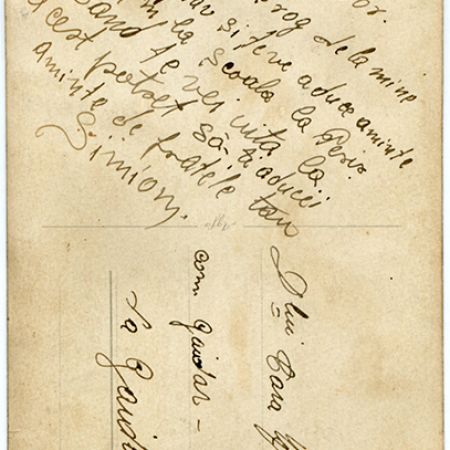 or.
rog de la mine
si te ve aduce aminte
in la Scoala la Peris.
Cand te vei uita la
acest potret să ti aducei
aminte de fratele tau
Simion.
Dlui Cara
com. Gaidar -
La Gaida